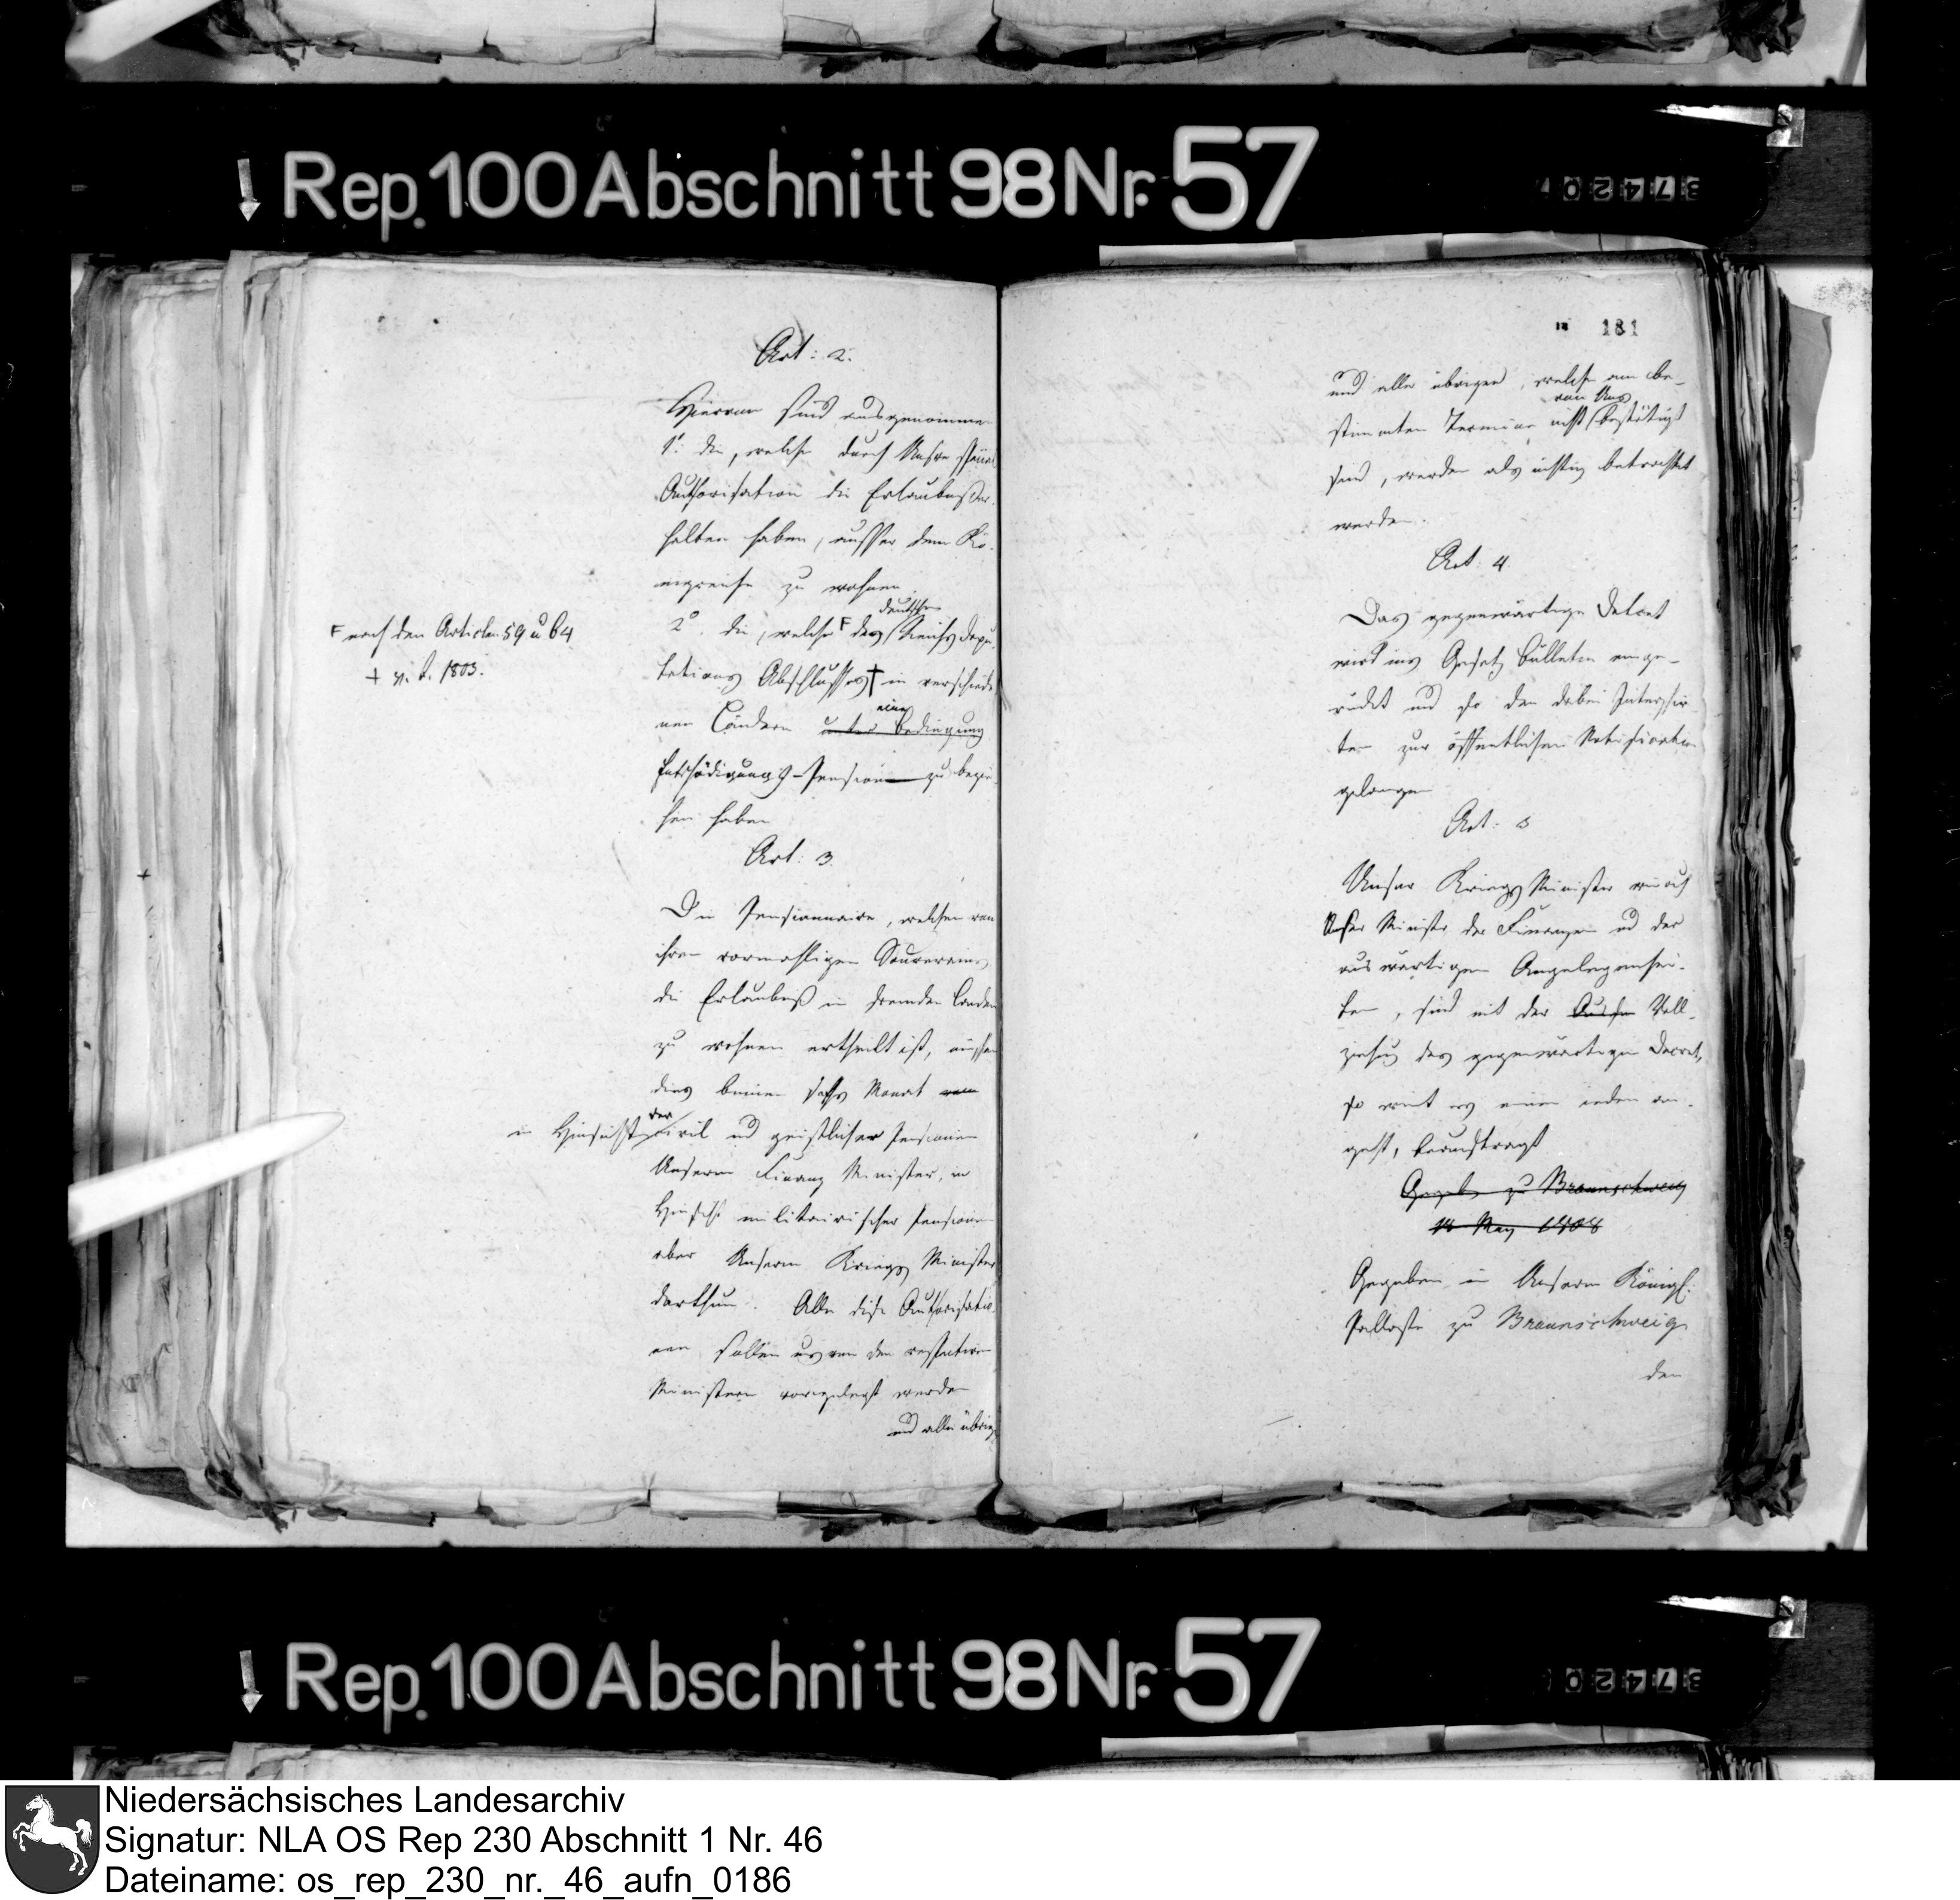 Rep. 100 Abschnitt 98 Nr. 57
Art: 2.
Hiervon sind ausgenommen
1° die, welche durch Unsre speciel
Authorisation die Erlaubniß er-
halten haben, ausser dem Kö-
nigreiche zu wohnen.
deutschen
2°. die, welche F des Reichs Depu-
tations Abschlusses † in verschiede-
nen Ländern unter Bedingung
eine
Entschädigungs-Pension zu bezie-
hen haben
F nach den Articlen 59 u 64
+ v. J. 1803.
Art: 3.
Die Pensionnaire, welchen von
ihren vormahligen Souverains,
die Erlaubniß in fremden Landen
zu wohnen ertheilt ist, müssen
dies binnen sechs Monat
in Hinsicht der Civil und geistlicher Pensionen
Unserm Finanz Minister, in
Hinsicht militairischer Pensionen
aber Unserm Kriegs Minister
darthun. Alle diese Authorisatio-
nen sollen uns von den respectiven
Ministern vorgelegt werden
und alle übrig
181
und alle übrigen, welche am be-
von Uns
stimmten Termine nicht bestätigt
sind, werden als nichtig betrachtet
werden.
Art: 4.
Das gegenwärtige Decret
wird ins Gesetz Bülletin einge-
rückt und so den dabei Interessir-
ten zur öffentlichen Notification
gelangen
Art: 5
Unser Kriegs Minister wie auch
Unser Minister der Finanzen und der
auswärtigen Angelegenhei-
ten, sind mit der Voll-
ziehung des gegenwärtigen Decrets,
so weit es einen jeden an-
geht, beauftragt
Gegeben zu Braunschweig
18 May 1808
Gegeben in Unserm Königl:
Pallaste zu Braunschweig
den
Rep. 100 Abschnitt 98 Nr. 57
Niedersächsisches Landesarchiv
Signatur: NLA OS Rep 230 Abschnitt 1 Nr. 46
Dateiname: os_rep_230_nr._46_aufn_0186